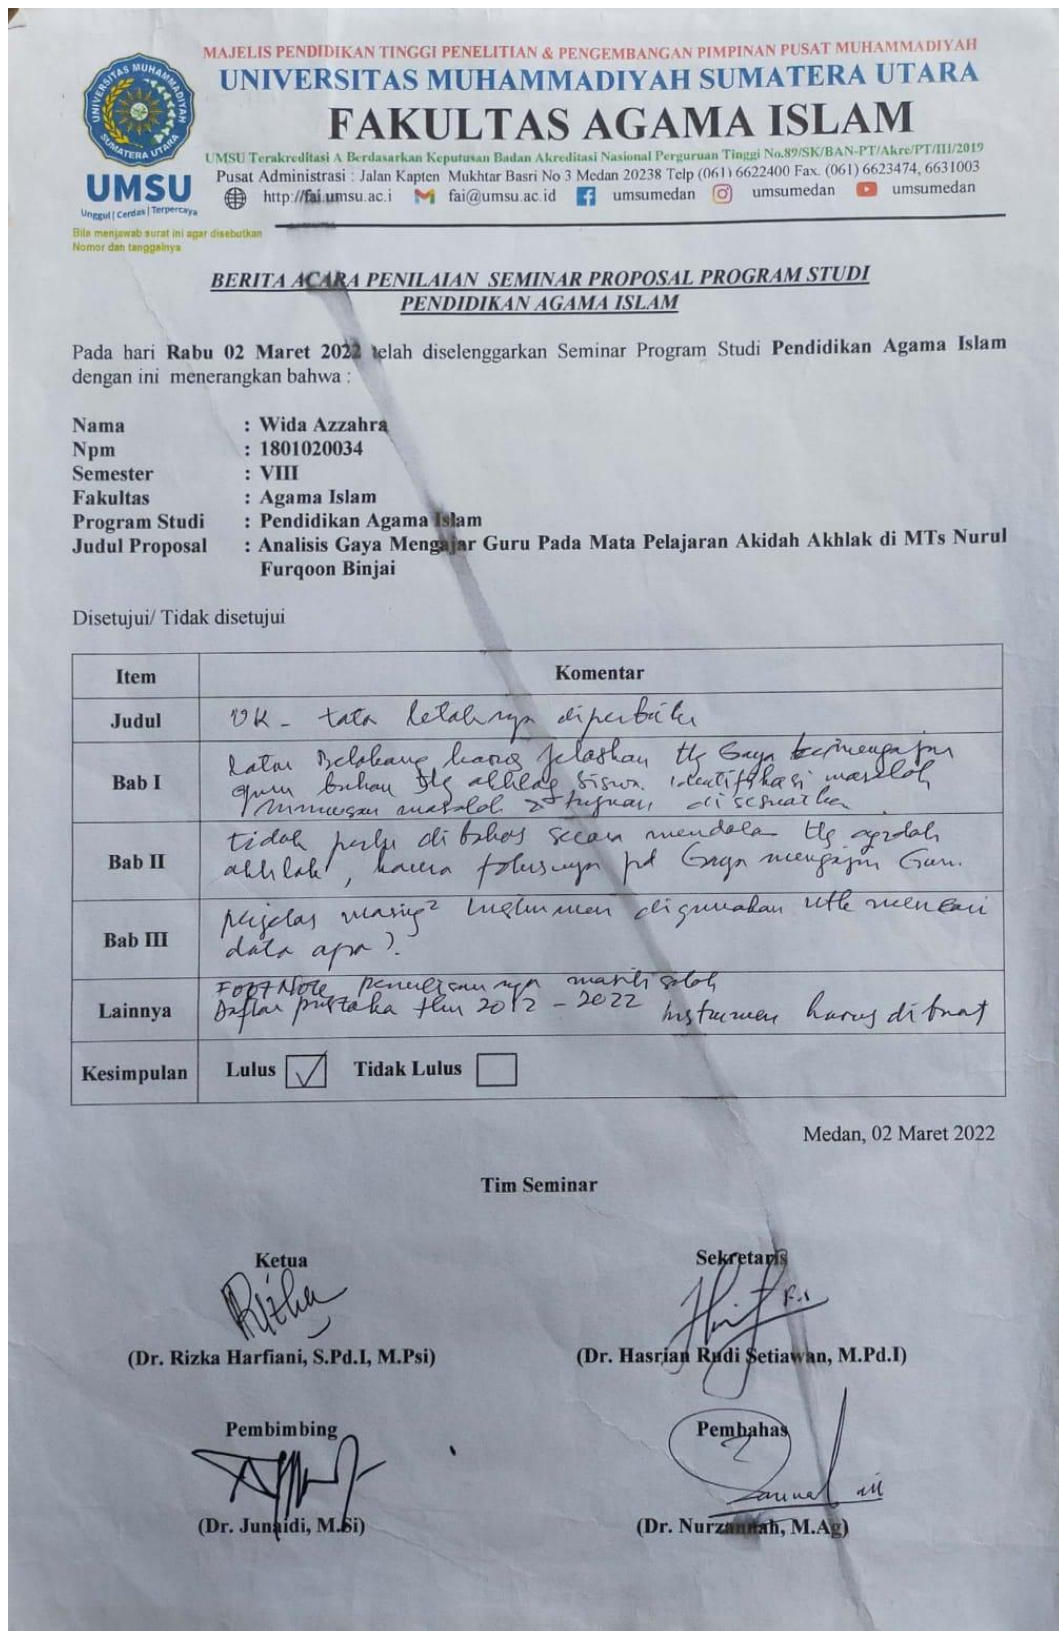 MAJELIS PENDIDIKAN TINGGI PENELITIAN & PENGEMBANGAN PIMPINAN PUSAT MUHAMMADIYAH
UNIVERSITAS MUHAMMADIYAH SUMATERA UTARA
FAKULTAS AGAMA ISLAM
UMSU Terakreditasi A Berdasarkan Keputusan Badan Akreditasi Nasional Perguruan Tinggi No.89/SK/BAN-PT/Akre/PT/III/2019
Pusat Administrasi : Jalan Kapten Mukhtar Basri No 3 Medan 20238 Telp (061) 6622400 Fax. (061) 6623474, 6631003
http://fai.umsu.ac.i fai@umsu.ac.id umsumedan umsumedan umsumedan
UNIVERSITAS MUHAMMADIYAH SUMATERA UTARA
UMSU
Unggul | Cerdas | Terpercaya
Bila menjawab surat ini agar disebutkan
Nomor dan tanggalnya
BERITA ACARA PENILAIAN SEMINAR PROPOSAL PROGRAM STUDI
PENDIDIKAN AGAMA ISLAM
Pada hari Rabu 02 Maret 2022 telah diselenggarkan Seminar Program Studi Pendidikan Agama Islam
dengan ini menerangkan bahwa :
Nama : Wida Azzahra
Npm : 1801020034
Semester : VIII
Fakultas : Agama Islam
Program Studi : Pendidikan Agama Islam
Judul Proposal : Analisis Gaya Mengajar Guru Pada Mata Pelajaran Akidah Akhlak di MTs Nurul
Furqoon Binjai
Disetujui/ Tidak disetujui
Item Komentar
Judul OK - tata letaknya diperbaiki
Bab I Latar Belakang harus jelaskan ttg Gaya mengajar
guru bukan ttg akhlak siswa. identifikasi masalah
rumusan masalah & tujuan disesuaikan
Bab II tidak perlu di bahas secara mendalam ttg aqidah
akhlak, karena fokusnya pd Gaya mengajar Guru.
Bab III perjelas masing2 Instrumen digunakan utk mencari
data apa?
Lainnya FootNote penulisannya masih salah
Daftar pustaka thn 2012 - 2022 Instrumen harus dibuat
Kesimpulan Lulus ✓ Tidak Lulus
Medan, 02 Maret 2022
Tim Seminar
Ketua Sekretaris
(Dr. Rizka Harfiani, S.Pd.I, M.Psi) (Dr. Hasrian Rudi Setiawan, M.Pd.I)
Pembimbing Pembahas
(Dr. Junaidi, M.Si) (Dr. Nurzannah, M.Ag)